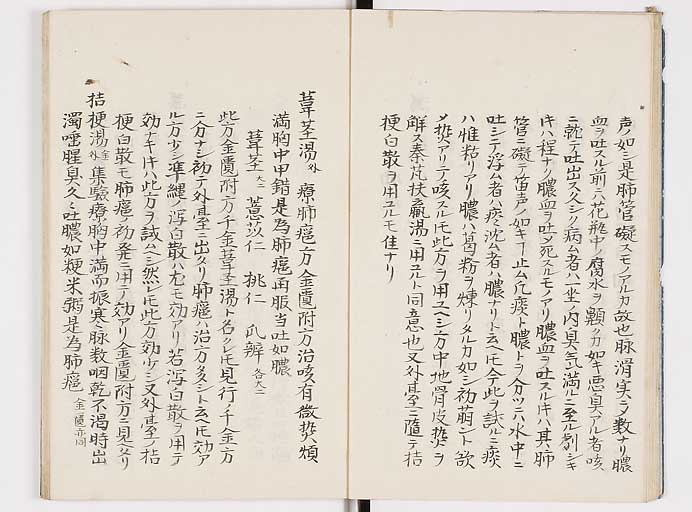 声ノ如シ是肺管礙スモノアルカ故也脉滑実ニメ数ナリ膿
血ヲ吐スル前ニハ花瓶中ノ腐水ヲ顆クカ如キ悪臭アル者咳
ニ軛テ吐出ス久シク病ム者ハ一坐ノ内臭気満ルニ至ル劇シキ
キハ程ナク膿血ヲ吐メ死スルモノアリ膿血ヲ吐スルキハ其ノ肺
管ニ礙テ笛声ノ如キヿ止ム凡痰ト膿トヲ分ツニハ水中ニ
吐シテ浮ム者ハ痰沈ム者ハ膿ナリト云ヘ𪜈今此ヲ試ルニ痰
ハ惟粘リアリ膿ハ葛粉ヲ煉リタルカ如シ初萠シト欲
メ㷔アリテ咳スル𪜈此方ヲ用ユヘシ方中地骨皮㷔ヲ
解ス秦芃扶羸湯ニ用ユルト同意也又外臺ニ随テ桔
梗白散ヲ用ユルモ佳ナリ
葦茎湯外 療肺癰方金匱附方治咳有微㷔煩
満胸中甲錯是為肺癰再服当吐如膿
葦茎大二 薏苡仁 桃仁 瓜瓣各大二
此方金匱附方ノ千金葦茎湯ト名クレ𪜈見行ノ千金方
ニ分ナシ初テ外臺ニ出タリ肺癰ハ治方多シト云ヘ𪜈効ア
ル方少シ準縄ノ瀉白散ハ尤モ効アリ若瀉白散ヲ用テ
効ナキキハ此方ヲ試ムヘシ然レ𪜈此方効少シ又外臺ノ桔
梗白散モ肺癰ノ初発ニ用テ効アリ金匱附方ニ見タリ
桔梗湯外 集驗療胸中満而振寒脉数咽乾不渇時出
濁唾腥臭久々吐膿如粳米粥是為肺癰 金匱亦同